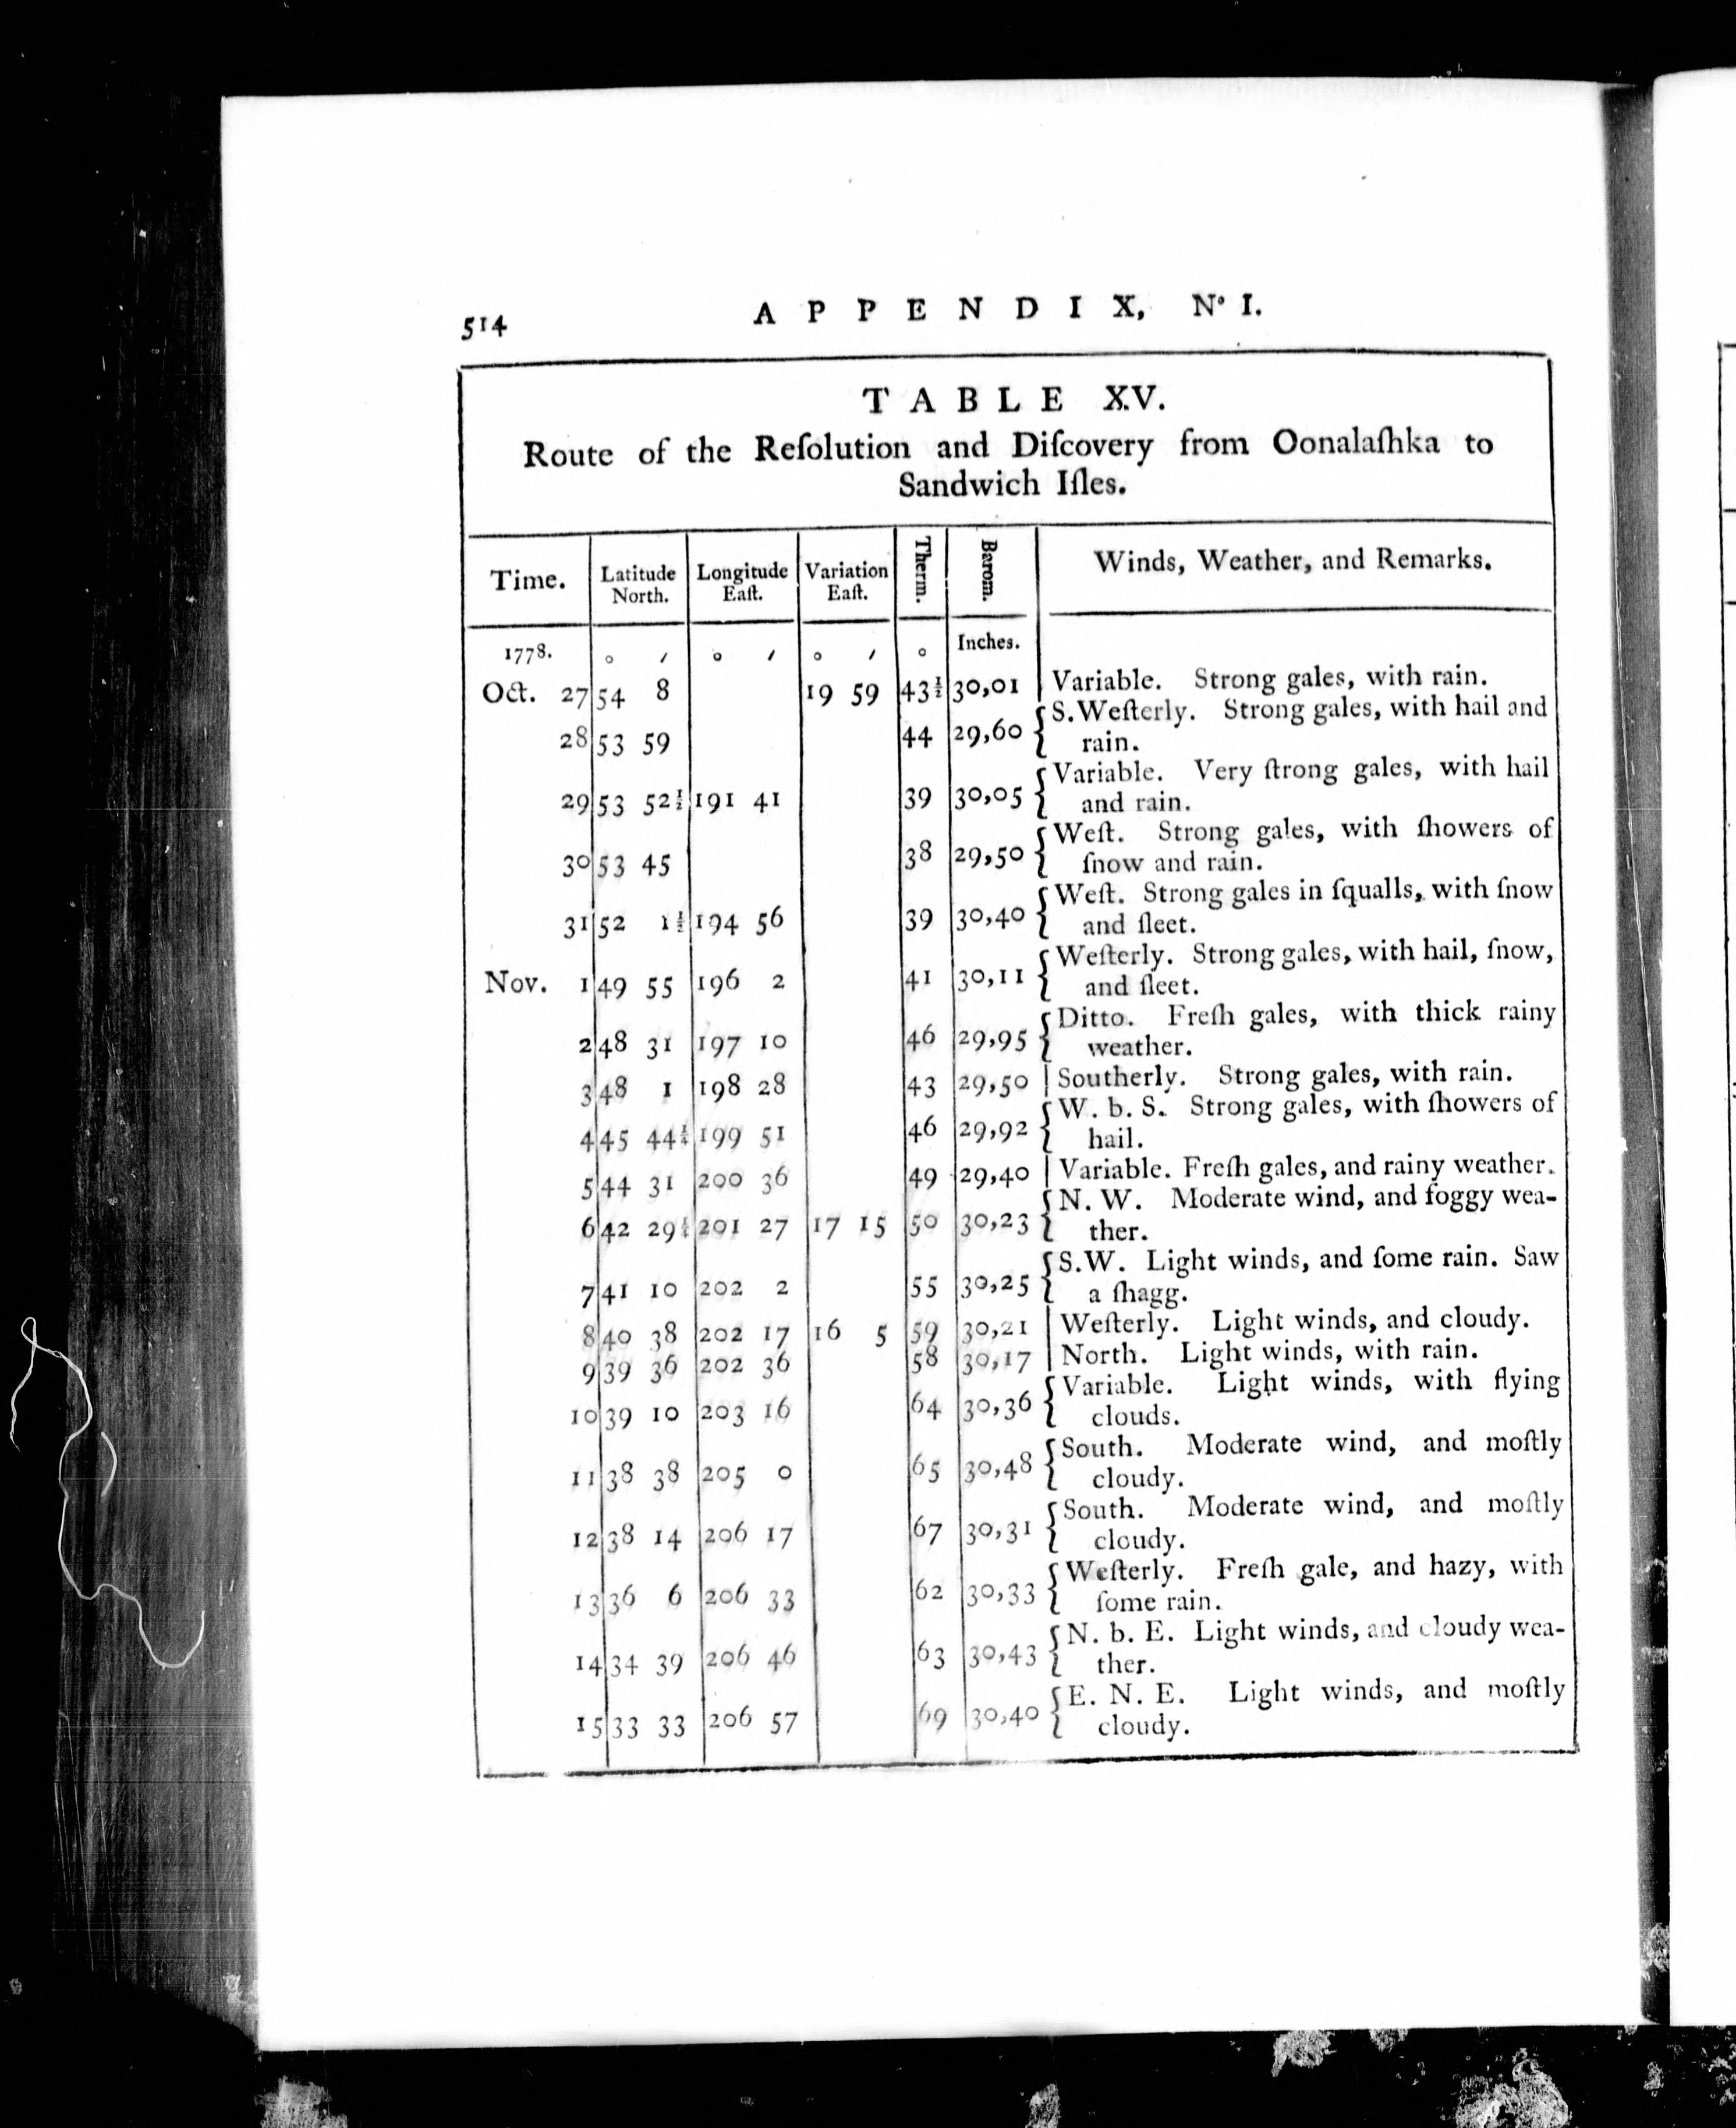 514
APPENDIX, Nº I.
TABLE XV.
Route of the Reſolution and Diſcovery from Oonalaſhka to
Sandwich Iſles.
Time. Latitude North. Longitude Eaſt. Variation Eaſt. Therm. Barom. Winds, Weather, and Remarks.
1778. ° ′ ° ′ ° ′ ° Inches.
Oct. 27 54 8 19 59 43½ 30,01 Variable. Strong gales, with rain.
28 53 59 44 29,60 S.Weſterly. Strong gales, with hail and
rain.
29 53 52½ 191 41 39 30,05 Variable. Very ſtrong gales, with hail
and rain.
30 53 45 38 29,50 Weſt. Strong gales, with ſhowers of
ſnow and rain.
31 52 1½ 194 56 39 30,40 Weſt. Strong gales in ſqualls, with ſnow
and ſleet.
Nov. 1 49 55 196 2 41 30,11 Weſterly. Strong gales, with hail, ſnow,
and ſleet.
2 48 31 197 10 46 29,95 Ditto. Freſh gales, with thick rainy
weather.
3 48 1 198 28 43 29,50 Southerly. Strong gales, with rain.
4 45 44 199 51 46 29,92 W. b. S. Strong gales, with ſhowers of
hail.
5 44 31 200 36 49 29,40 Variable. Freſh gales, and rainy weather.
6 42 29 201 27 17 15 50 30,23 N. W. Moderate wind, and foggy wea-
ther.
7 41 10 202 2 55 30,25 S.W. Light winds, and ſome rain. Saw
a ſhagg.
8 40 38 202 17 16 5 59 30,21 Weſterly. Light winds, and cloudy.
9 39 36 202 36 58 30,17 North. Light winds, with rain.
10 39 10 203 16 64 30,36 Variable. Light winds, with flying
clouds.
11 38 38 205 0 65 30,48 South. Moderate wind, and moſtly
cloudy.
12 38 14 206 17 67 30,31 South. Moderate wind, and moſtly
cloudy.
13 36 6 206 33 62 30,33 Weſterly. Freſh gale, and hazy, with
ſome rain.
14 34 39 206 46 63 30,43 N. b. E. Light winds, and cloudy wea-
ther.
15 33 33 206 57 69 30,40 E. N. E. Light winds, and moſtly
cloudy.